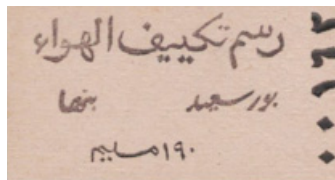 رسم تكييف الهواء
بورسعيد بنها
١٩٠ مليم